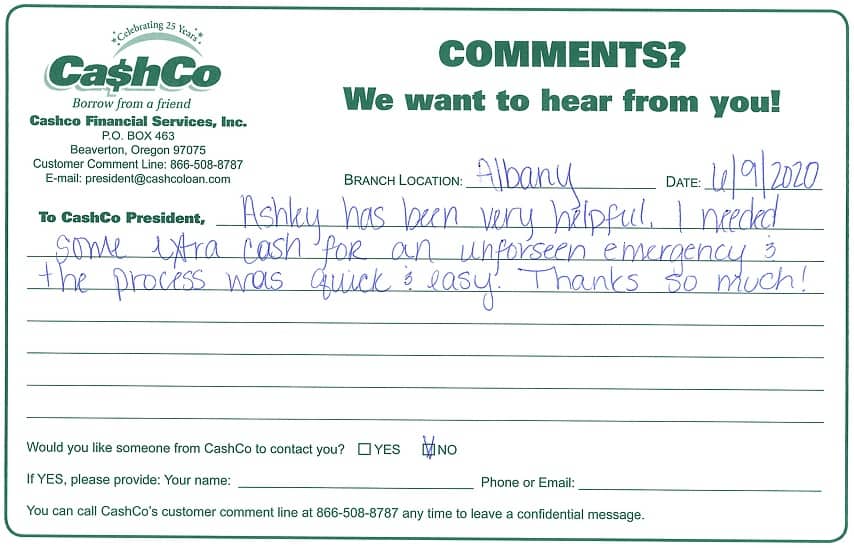 Celebrating 25 Years
Ca$hCo
Borrow from a friend
Cashco Financial Services, Inc.
P.O. BOX 463
Beaverton, Oregon 97075
Customer Comment Line: 866-508-8787
E-mail: president@cashcoloan.com
COMMENTS?
We want to hear from you!
BRANCH LOCATION: Albany DATE: 6/9/2020
To CashCo President, Ashley has been very helpful. I needed
some extra cash for an unforseen emergency &
the process was quick & easy. Thanks so much!
Would you like someone from CashCo to contact you? ☐ YES ☑ NO
If YES, please provide: Your name: Phone or Email:
You can call CashCo's customer comment line at 866-508-8787 any time to leave a confidential message.